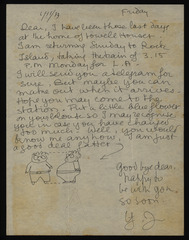 Friday
Dear, I have been these last days
at the home of Lowell Houser
I am returning Sunday to Rock
Island, taking the train of 3.15
P.M. Monday for L. A.
I will send you a telegram for
sure. But maybe you can
make out when it arrives.
Hope you may come to the
station. Put a little blue flower
on your blouse so I may recognise
you in case you have changed
too much. Well, you would
know me anyhow. I am just
a
good deal fatter
Good bye dear.
Happy to
be with you
so soon